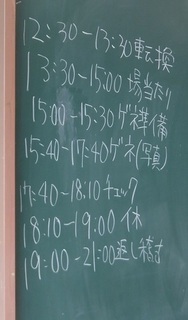 12:30-13:30転換
13:30-15:00 場当たり
15:00-15:30ゲネ準備
15:40-17:40ゲネ(写真)
17:40-18:10チェック
18:10-19:00 休
19:00-21:00返し稽古